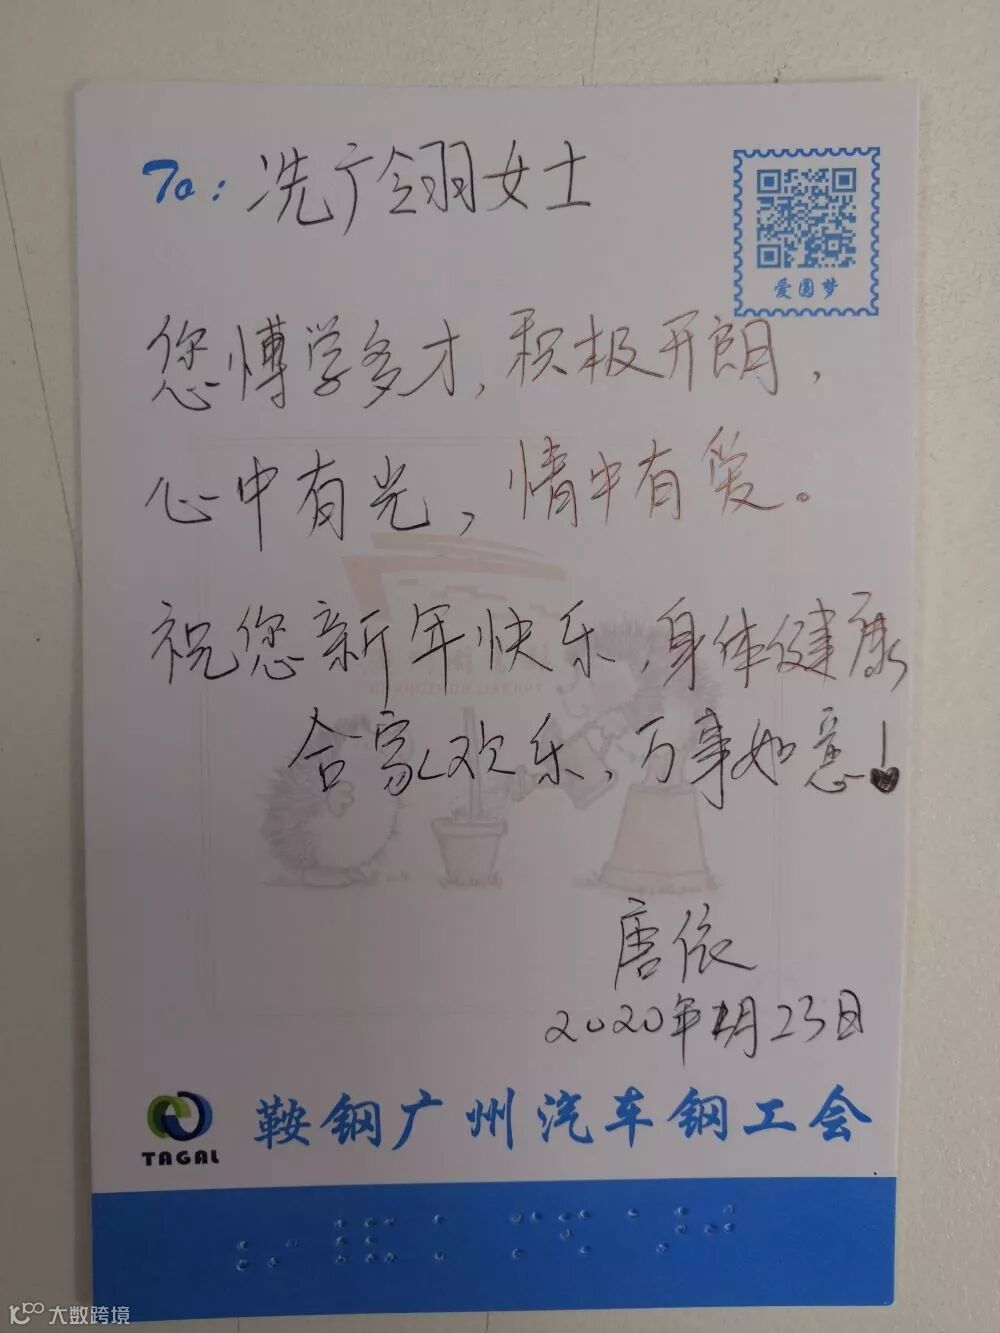 To: 冼广翎女士
爱圆梦
您博学多才, 积极开朗,
心中有光, 情中有爱。
祝您新年快乐, 身体健康
合家欢乐, 万事如意!
GUANGZHOU LIBRARY
唐依
2020年1月23日
TAGAL
鞍钢广州汽车钢工会
大数跨境